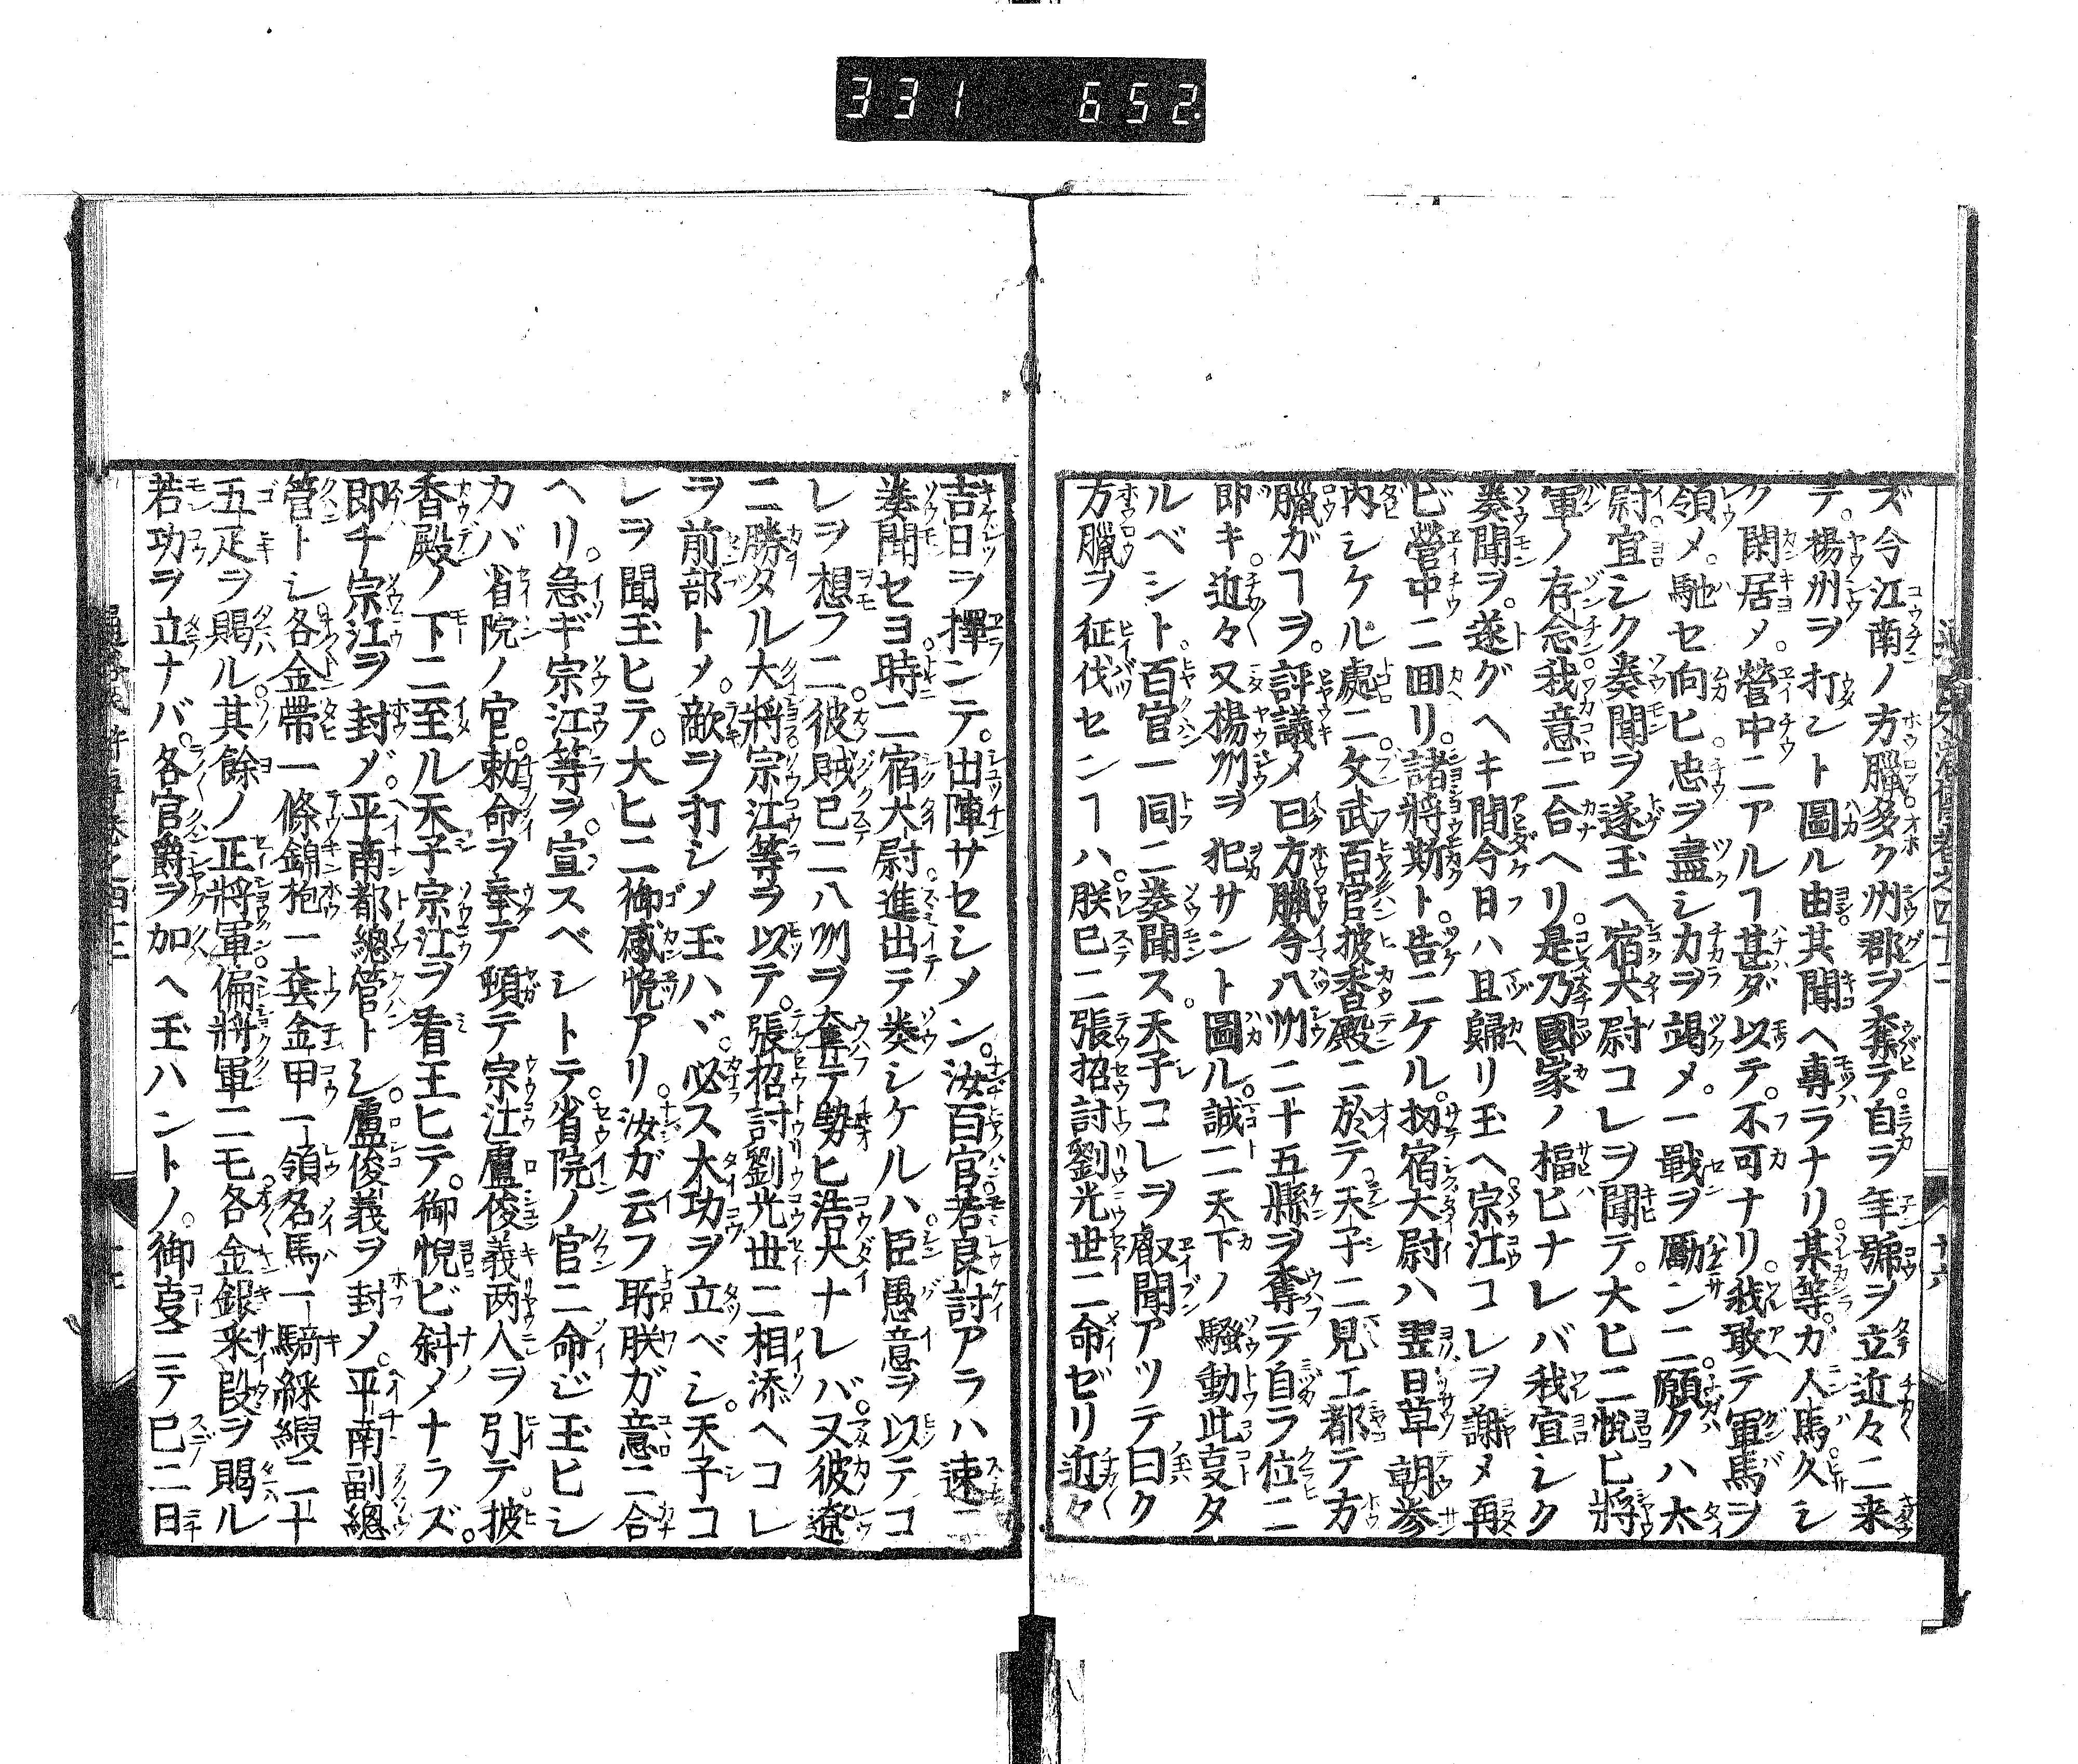 331 652
ズ今江南ノ方臘多ク州郡ヲ奪テ。自ラ年號ヲ立近々ニ来
テ。楊州ヲ打ント圖ル由其聞ヘ專ラナリ。某等ガ人馬久シ
ク閑居メ。營中ニアルヿ甚ダ以テ。不可ナリ。我敢テ軍馬ヲ
領メ。馳セ向ヒ。忠ヲ盡シ力ヲ竭メ。一戰ヲ勵ンニ。願クハ太
尉宜シク奏聞ヲ遂玉ヘ宿太尉コレヲ聞テ。大ヒニ悅ヒ將
軍ノ存念我意ニ合ヘリ。是乃國家ノ福ヒナレバ我宜シク
奏聞ヲ。遂グヘキ間今日ハ且歸リ玉ヘ。宗江コレヲ謝メ再
ビ營中ニ囬リ。諸將斯ト。告ニケル。扨宿太尉ハ翌日草朝參
内シケル處ニ。文武百官披香殿ニ於テ天子ニ見エ都テ方
臘ガヿヲ。評議メ曰方臘今八州二十五縣ヲ奪テ自ラ位ニ
即キ。近々又楊州ヲ犯サント圖ル。誠ニ天下ノ騷動此㕝タ
ルベシト。百官一同ニ奏聞ス。天子コレヲ叡聞アツテ曰ク
方臘ヲ征伐センヿハ。朕已ニ張招討劉光世ニ命ゼリ近々
吉日ヲ擇ンテ。出陣サセシメン。汝百官若良討アラハ速ニ
奏聞セヨ。時ニ宿太尉進出テ奏シケルハ臣愚意ヲ以テコ
レヲ想フニ。彼賊已ニ八州ヲ奪テ勢ヒ浩大ナレバ。又彼遼
ニ勝タル大將宗江等ヲ以テ。張招討劉光世ニ相添ヘコレ
ヲ前部トメ。敵ヲ打シメ玉ハヾ。必ス大功ヲ立ベシ。天子コ
レヲ聞玉ヒテ。大ヒニ御感悅アリ。汝ガ云フ所朕ガ意ニ合
ヘリ。急ギ宗江等ヲ。宣スベシトテ。省院ノ官ニ命ジ玉ヒシ
カバ省院ノ官。勅命ヲ奉テ頓テ宗江盧俊義两人ヲ引テ披
香殿ノ下ニ至ル天子宗江ヲ看玉ヒテ。御悅ビ斜メナラズ。
即チ宗江ヲ封メ。平南都總管トシ。盧俊義ヲ封メ。平南副總
管トシ各金帶一條錦袍一套金甲一領名馬一騎綵緞二十
五疋ヲ賜ル。其餘ノ正將軍偏將軍ニモ各金銀釆段ヲ賜ル
若功ヲ立ナバ。各官爵ヲ加ヘ玉ハントノ。御㕝ニテ已ニ日